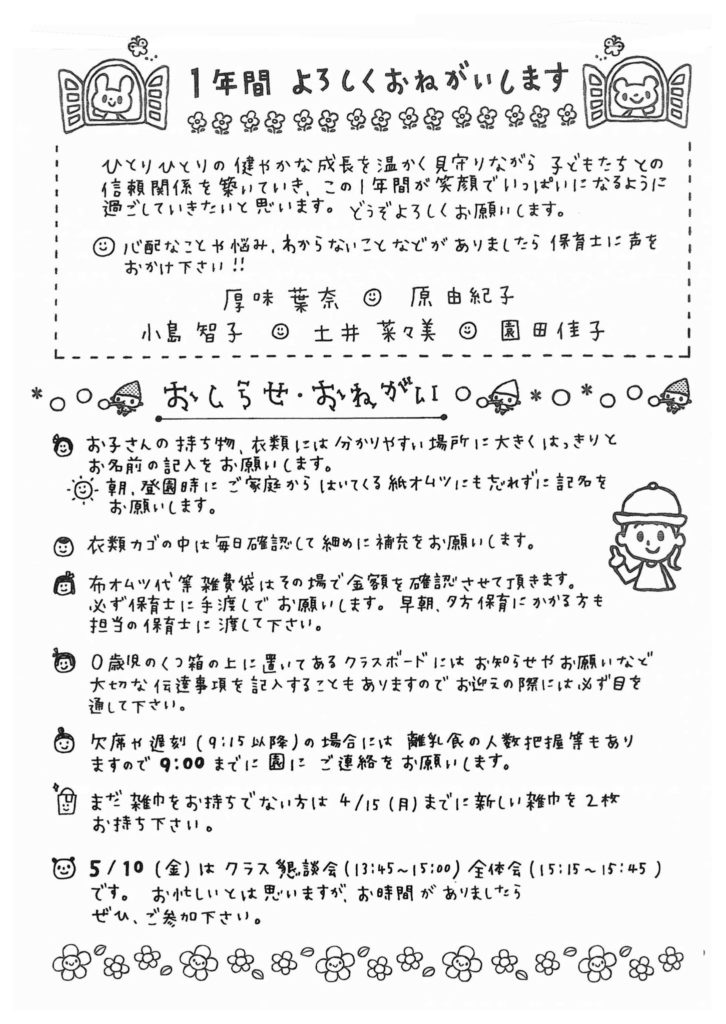 1年間 よろしくおねがいします
ひとりひとりの健やかな成長を温かく見守りながら 子どもたちとの
信頼関係を築いていき、この1年間が笑顔でいっぱいになるように
過ごしていきたいと思います。 どうぞよろしくお願いします。
心配なことや悩み、わからないことなどが ありましたら 保育士に声を
おかけ下さい!!
厚味 葉奈 ☺ 原 由紀子
小島 智子 ☺ 土井 菜々美 ☺ 園田佳子
おしらせ・おねがい
お子さんの持ち物、衣類には分かりやすい場所に大きくはっきりと
お名前の記入をお願いします。
朝、登園時に ご家庭から はいてくる紙オムツにも忘れずに記名を
お願いします。
衣類カゴの中は毎日確認して細めに補充をお願いします。
布オムツ代等雑費袋はその場で金額を確認させて頂きます。
必ず保育士に手渡しで お願いします。 早朝、夕方保育にかかる方も
担当の保育士に渡して下さい。
0歳児のくつ箱の上に置いてあるクラスボードには お知らせやお願いなど
大切な伝達事項を記入することもありますので お迎えの際には必ず目を
通して下さい。
欠席や遅刻 (9:15以降)の場合には 離乳食の人数把握等もあり
ますので 9:00 までに園に ご連絡をお願いします。
まだ雑巾をお持ちでない方は 4/15 (月)までに新しい雑巾を2枚
お持ち下さい。
5/10 (金)は クラス懇談会(13:45~15:00) 全体会(15:15~15:45)
です。 お忙しいとは思いますが、お時間が ありましたら
ぜひ、ご参加下さい。